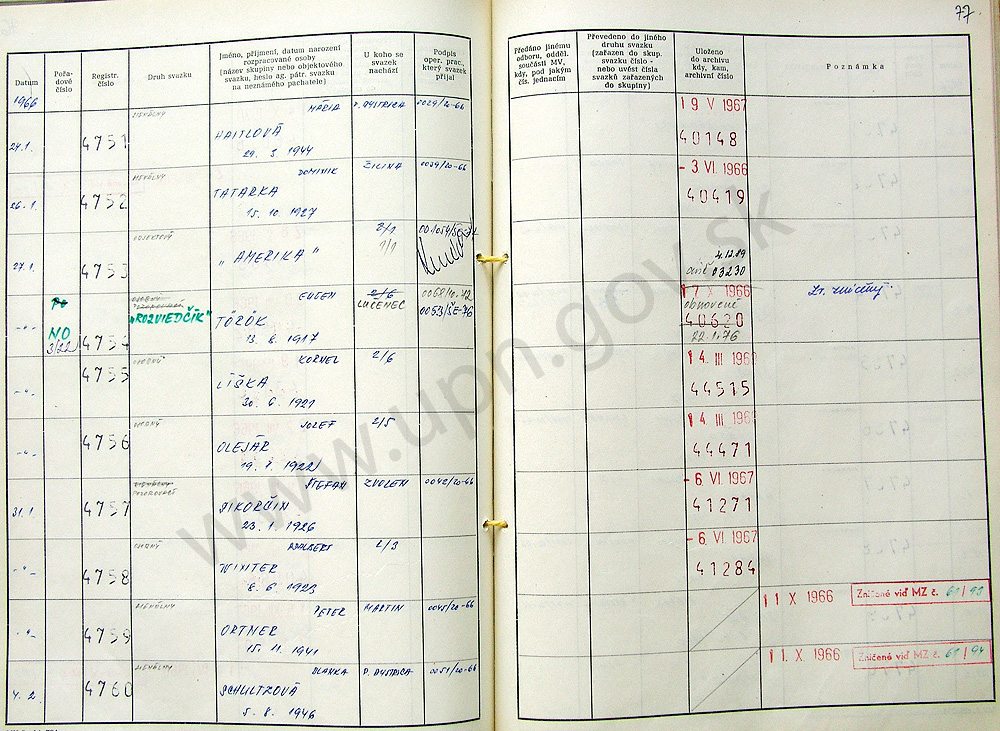 77
Datum
Pořa-
dové
číslo
Registr.
číslo
Druh svazku
Jméno, příjmení, datum narození
rozpracované osoby
(název skupiny nebo objektového
svazku, heslo ag. pátr. svazku
na neznámého pachatele)
U koho se
svazek
nachází
Podpis
oper. prac.,
který svazek
přijal
Předáno jinému
odboru, odděl.
součásti MV,
kdy, pod jakým
čís. jednacím
Převedeno do jiného
druhu svazku
(zařazen do skup.
svazku číslo -
nebo uvést čísla
svazků zařazených
do skupiny)
Uloženo
do archivu
kdy, kam,
archivní číslo
Poznámka
1966
MÁRIA B. BYSTRICA 0029/20-66 19 V 1967
24.1. 4751 HAITLOVÁ 40148
29. 3. 1944
DOMINIK ŽILINA 0039/20-66 - 3 VI. 1966
26.1. 4752 TATARKA 40419
15. 10. 1927
OBJEKTOVÝ 2/1
27.1. 4753 „AMERIKA" 1/1 4.12.89
03230
EUGEN 2/6 17 X 1966
„ROZVIEDČÍK" LUČENEC 0053/ŠE-76 obnovené
-"- NO 3/22 4754 TÖRÖK 40620
13. 8. 1917 22.1.76
OSOBNÝ KORNEL 2/6 14. III 196
-"- 4755 LÍŠKA 44515
30. 6. 1921
OSOBNÝ JOZEF 2/5 14 III 196
-"- 4756 OLEJÁR 44471
1922
POZOROVACÍ ŠTEFAN ZVOLEN 0042/20-66 - 6 VI. 1967
31.1 4757 41271
23. 1. 1926
OSOBNÝ ADALBERT 2/3 - 6. VI. 1967
-"- 4758 WINTER 41284
8. 6. 1923
PETER MARTIN 0045/20-66 11 X 1966 Zničené viď MZ č. 61/93
-"- 4759 ORTNER
15. 11. 1941
BLANKA B. BYSTRICA 0051/20-66 11. X 1966 Zničené viď MZ č. 61/94
4. 2. 4760 SCHULTZOVÁ
5. 8. 1946
www.upn.gov.sk